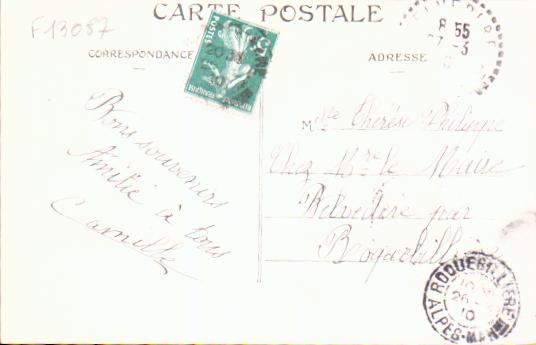 CARTE POSTALE
F13087
CORRESPONDANCE
ADRESSE
8 55
POSTES
Bons souvenirs
Amitié à tous
Camille
Mlle Thérèse Philippe
Chez Mr le Maire
Belvédère par
Roquebillière
ROQUEBILLIERE
26
10
ALPES-MAR